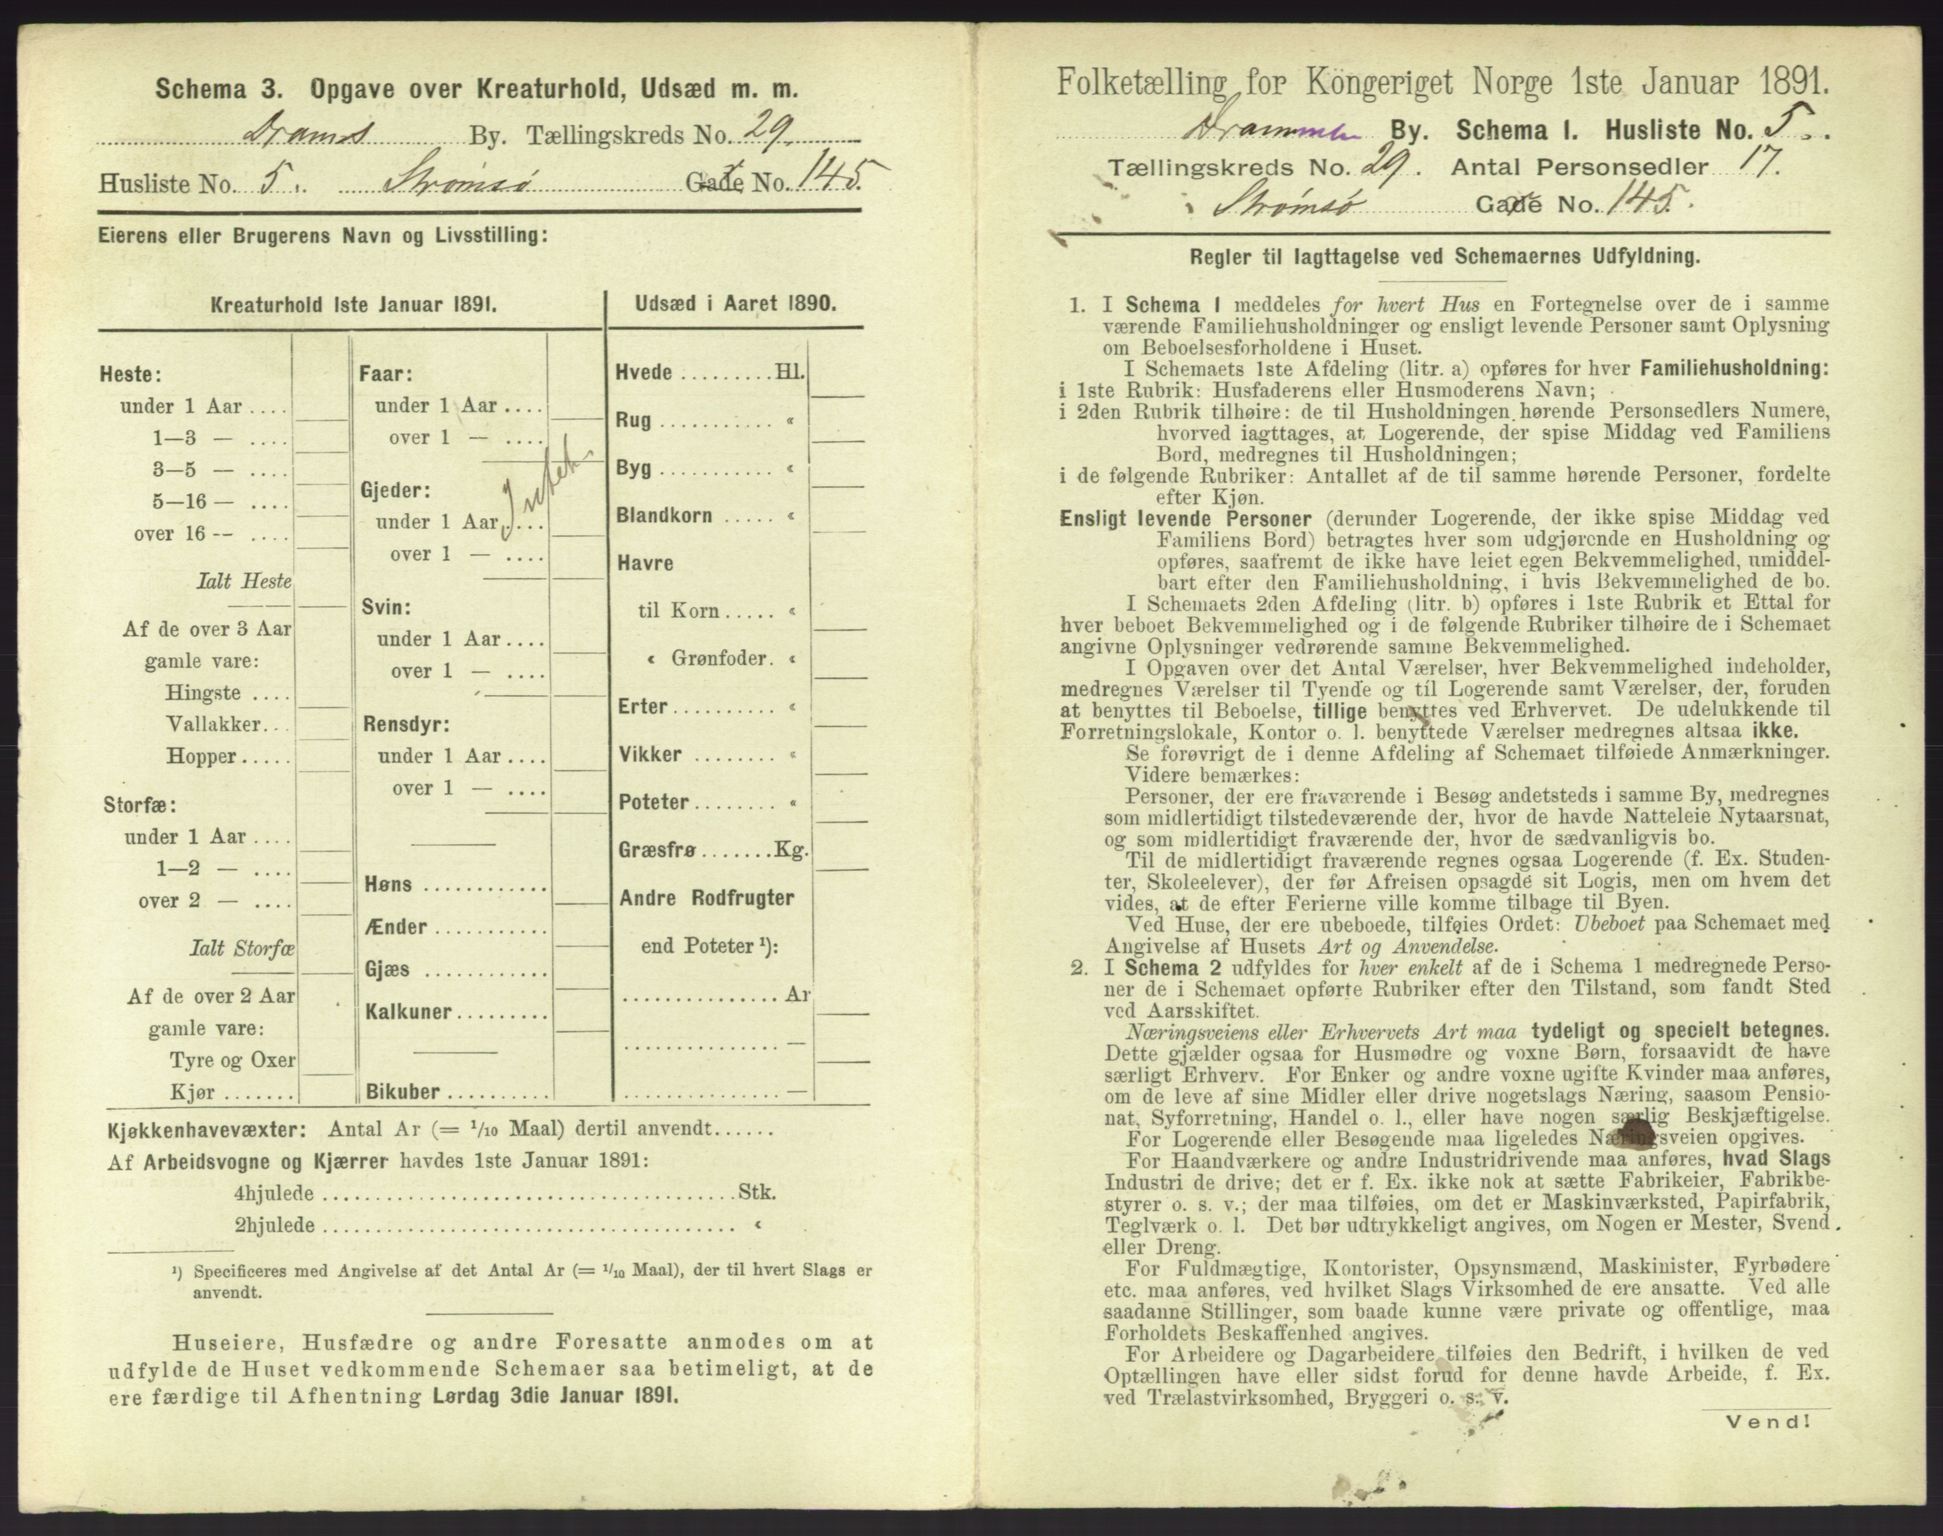 Schema 3. Opgave over Kreaturhold, Udsæd m. m.
Drams By. Tællingskreds No. 29.
Husliste No. 5. Strømsø Gade No. 145.
Eierens eller Brugerens Navn og Livsstilling:
Kreaturhold 1ste Januar 1891.
Heste:
under 1 Aar ....
1—3 — ....
3—5 — ....
5—16 — ....
over 16 -- ....
Ialt Heste
Af de over 3 Aar
gamle vare:
Hingste ....
Vallakker..
Hopper.....
Storfæ:
under 1 Aar ....
1—2 — ....
over 2 — ....
Ialt Storfæ
Af de over 2 Aar
gamle vare:
Tyre og Oxer
Kjør .......
Faar:
under 1 Aar ....
over 1 — ....
Gjeder:
Intet.
under 1 Aar ....
over 1 — ....
Svin:
under 1 Aar....
over 1 — ....
Rensdyr:
under 1 Aar....
over 1 — ....
Høns ............
Ænder ...........
Gjæs ............
Kalkuner.........
Bikuber ..........
Udsæd i Aaret 1890.
Hvede .........Hl.
Rug ........... «
Byg ........... «
Blandkorn ..... «
Havre
til Korn ..... «
« Grønfoder. «
Erter.......... «
Vikker ........ «
Poteter........ «
Græsfrø.......Kg.
Andre Rodfrugter
end Poteter ¹):
............... Ar
............... —
............... —
Kjøkkenhavevæxter: Antal Ar (= 1/10 Maal) dertil anvendt......
Af Arbeidsvogne og Kjærrer havdes 1ste Januar 1891:
4hjulede ......................................Stk.
2hjulede ...................................... «
¹) Specificeres med Angivelse af det Antal Ar (= 1/10 Maal), der til hvert Slags er
anvendt.
Huseiere, Husfædre og andre Foresatte anmodes om at
udfylde de Huset vedkommende Schemaer saa betimeligt, at de
ere færdige til Afhentning Lørdag 3die Januar 1891.
Folketælling for Kongeriget Norge 1ste Januar 1891.
Drammen By. Schema 1. Husliste No. 5.
Tællingskreds No. 29. Antal Personsedler 17.
Strømsø Gade No. 145.
Regler til Iagttagelse ved Schemaernes Udfyldning.
1. I Schema 1 meddeles for hvert Hus en Fortegnelse over de i samme
værende Familiehusholdninger og ensligt levende Personer samt Oplysning
om Beboelsesforholdene i Huset.
I Schemaets 1ste Afdeling (litr. a) opføres for hver Familiehusholdning:
i 1ste Rubrik: Husfaderens eller Husmoderens Navn;
i 2den Rubrik tilhøire: de til Husholdningen hørende Personsedlers Numere,
hvorved iagttages, at Logerende, der spise Middag ved Familiens
Bord, medregnes til Husholdningen;
i de følgende Rubriker: Antallet af de til samme hørende Personer, fordelte
efter Kjøn.
Ensligt levende Personer (derunder Logerende, der ikke spise Middag ved
Familiens Bord) betragtes hver som udgjørende en Husholdning og
opføres, saafremt de ikke have leiet egen Bekvemmelighed, umiddel-
bart efter den Familiehusholdning, i hvis Bekvemmelighed de bo.
I Schemaets 2den Afdeling (litr. b) opføres i 1ste Rubrik et Ettal for
hver beboet Bekvemmelighed og i de følgende Rubriker tilhøire de i Schemaet
angivne Oplysninger vedrørende samme Bekvemmelighed.
I Opgaven over det Antal Værelser, hver Bekvemmelighed indeholder,
medregnes Værelser til Tyende og til Logerende samt Værelser, der, foruden
at benyttes til Beboelse, tillige benyttes ved Erhvervet. De udelukkende til
Forretningslokale, Kontor o. l. benyttede Værelser medregnes altsaa ikke.
Se forøvrigt de i denne Afdeling af Schemaet tilføiede Anmærkninger.
Videre bemærkes:
Personer, der ere fraværende i Besøg andetsteds i samme By, medregnes
som midlertidigt tilstedeværende der, hvor de havde Natteleie Nytaarsnat,
og som midlertidigt fraværende der, hvor de sædvanligvis bo.
Til de midlertidigt fraværende regnes ogsaa Logerende (f. Ex. Studen-
ter, Skoleelever), der før Afreisen opsagde sit Logis, men om hvem det
vides, at de efter Ferierne ville komme tilbage til Byen.
Ved Huse, der ere ubeboede, tilføies Ordet: Ubeboet paa Schemaet med
Angivelse af Husets Art og Anvendelse.
2. I Schema 2 udfyldes for hver enkelt af de i Schema 1 medregnede Perso-
ner de i Schemaet opførte Rubriker efter den Tilstand, som fandt Sted
ved Aarsskiftet.
Næringsveiens eller Erhvervets Art maa tydeligt og specielt betegnes.
Dette gjælder ogsaa for Husmødre og voxne Børn, forsaavidt de have
særligt Erhverv. For Enker og andre voxne ugifte Kvinder maa anføres,
om de leve af sine Midler eller drive nogetslags Næring, saasom Pensio-
nat, Syforretning, Handel o. l., eller have nogen særlig Beskjæftigelse.
For Logerende eller Besøgende maa ligeledes Næringsveien opgives.
For Haandværkere og andre Industridrivende maa anføres, hvad Slags
Industri de drive; det er f. Ex. ikke nok at sætte Fabrikeier, Fabrikbe-
styrer o. s. v.; der maa tilføies, om det er Maskinværksted, Papirfabrik,
Teglværk o. l. Det bør udtrykkeligt angives, om Nogen er Mester, Svend
eller Dreng.
For Fuldmægtige, Kontorister, Opsynsmænd, Maskinister, Fyrbødere
etc. maa anføres, ved hvilket Slags Virksomhed de ere ansatte. Ved alle
saadanne Stillinger, som baade kunne være private og offentlige, maa
Forholdets Beskaffenhed angives.
For Arbeidere og Dagarbeidere tilføies den Bedrift, i hvilken de ved
Optællingen have eller sidst forud for denne havde Arbeide, f. Ex.
ved Trælastvirksomhed, Bryggeri o. s. v.
Vend!